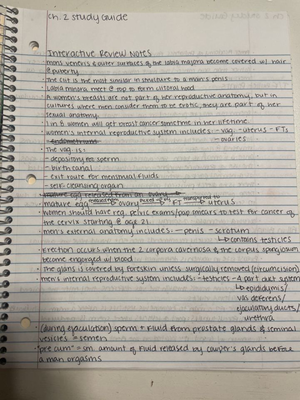 Ch. 2 study guide
Interactive Review Notes
· mons veneris & outer surfaces of the labia majora become covered w/ hair
@ puberty
· the clit is the most similar in structure to a man's penis
· labia minora meet @ top to form clitoral hood
· A women's breasts are not part of her reproductive anatomy, but in
cultures where men consider them to be erotic, they are part of her
sexual anatomy.
· 1 in 8 women will get breast cancer sometime in her lifetime.
· women's internal reproductive system includes: - vag. - uterus - FTs
- ovaries
· the vag. is:
- depository for sperm
- birth canal
- exit route for menstrual fluids
- self-cleaning organ
· mature egg → ovary → FT → uterus
· women should have reg. pelvic exams/pap smears to test for cancer of
the cervix starting @ age 21
· men's external anatomy includes: - penis - scrotum
↳ contains testicles
· Erection occurs when the 2 corpora cavernosa & the corpus spongiosum
become engorged w/ blood
· the glans is covered by foreskin unless surgically removed (circumcision)
· men's internal reproductive system includes: - testicles - 4 part duct system
↳ epididymis/
vas deferens/
ejaculatory ducts/
urethra
· (during ejaculation) sperm + fluid from prostate glands & seminal
vesicles = semen
· "pre cum" = sm. amount of fluid released by cowper's glands before
a man orgasms